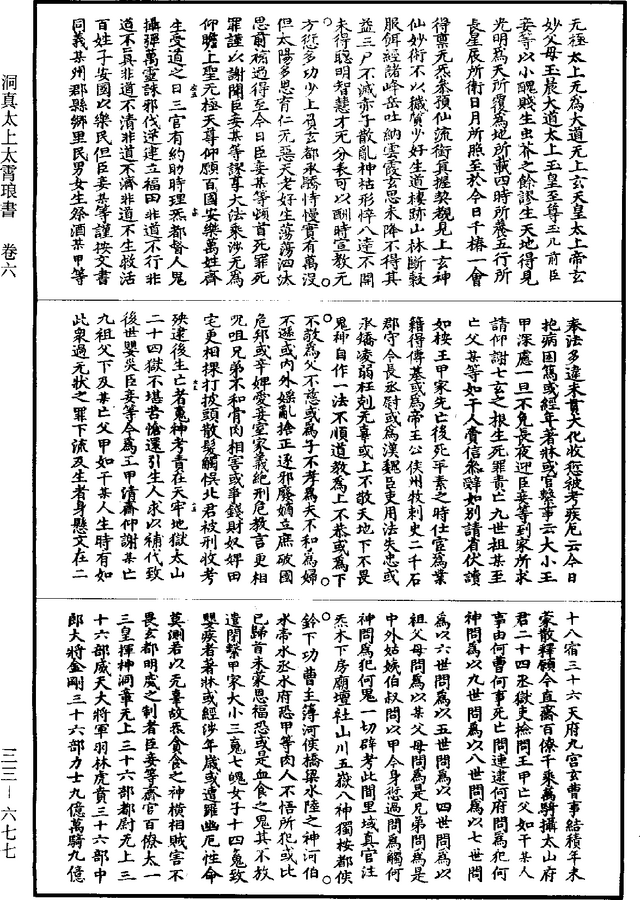 洞真太上太霄琅書　卷六
三三—六七七
元極太上无為大道无上玄天皇太上帝玄
妙父母玉晨大道太上玉皇至尊玉几前臣
妾等以小醜賤生虫芥之餘謬生天地得見
光明為天所覆為地所載四時所養五行所
長星辰所衛日月所照至於今日千椿一會
得稟元炁忝預仙流銜真握契親見上玄神
仙妙術不以穢質少好生道棲跡山林斷穀
服餌經諸峰岳吐納雲霞玄思未降不得其
益三尸不滅赤子散亂神枯形悴八達不開
未得聰明智慧才无分表可以酬時宣教无
方愆多功少上負玄都永驕恃慢實有萬沒
但太陽多思育仁无惡天老好生蕩蕩洒汰
思前愆過得至今日臣妾某等頓首死罪死
罪謹以謝聞臣妾某等謬尊大法乘涉无為
仰瞻上聖无極天尊仰願百國安樂萬姓齊
生受道之日三官有約助時理炁都督人鬼
攝彈萬靈誅邪伐逆建立福田非道不行非
道不真非道不清非道不濟非道不生救活
百姓子安國以樂民但臣妾某等謹按文書
同義某州郡縣鄉里民男女生祭酒某甲等
奉法多違未貫大化收愆被考疾厄云今日
抱病困篤或經年著牀或官繫事云大小王
甲深慮一旦不免長夜迎臣妾等到家所求
請仰謝七玄之根生死罪責亡九世祖某至
亡父某等如干人賫信忝辭如別請省伏讀
如按王甲家先亡後死平素之時仕宦為業
籍得傳基或為帝王公侯州牧刺史二千石
郡守令長丞尉或為漢魏臣吏用法失忠或
承矯凌弱枉剋无辜或上不敬天地下不畏
鬼神自作一法不順道教為上不恭或為下
不敬為父不慈或為子不孝為夫不和為婦
不遜或內外婬亂捨正逐邪廢嫡立庶破國
危邦或辛婢愛妾室家義絕刑危教言更相
咒咀兄弟不和骨肉相害或爭錢財奴婢田
宅更相棵打披頭散髮觸悮北君被刑收考
殃逮後生亡者魂神考責在天牢地獄太山
二十四獄不堪苦愴還引生人求以補代致
後世嬰災臣妾等今為王甲清齋仰謝某亡
九祖父下及某亡父甲如干某人生時有如
此衆過无狀之罪下流及生者身懸文在二
十八宿三十六天府九宮玄曹事結積年未
蒙散釋願令直齋百僚千乘萬騎攝太山府
君二十四丞獄吏撿問王甲亡父如干某人
事由何曹何事死亡問連逮何府問爲犯何
神問爲以九世問爲以八世問爲以七世問
爲以六世問爲以五世問爲以四世問爲以
祖父母問爲以某父母問爲是兄弟問爲是
中外姑姨伯叔問以甲今身愆過問爲觸何
神問爲犯何鬼一切辟考此間里域真官注
炁木下房廟壇社山川五嶽八神獨桉都候
鈴下功曹主簿河侯橋梁水陸之神河伯
水帝水丞水府恐甲等肉人不悟所犯或比
已歸首未蒙恩福恐或是血食之鬼其不放
遣閉繫甲家大小三魂七魄女子十四魂致
嬰疾者著牀或經涉年歲或遭羅幽厄性命
莫測若以无辜故炁貪食之神橫相賊害不
畏玄都明威之制者臣妾等齋官百僚太一
三皇揮神洞章无上三十六部都尉无上三
十六部威天大將軍羽林虎賁三十六部中
郎大將金剛三十六部力士九億萬騎九億